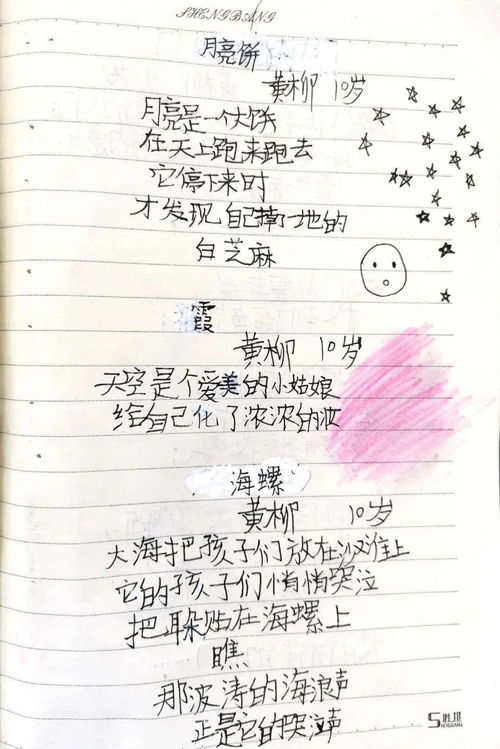 SHENGBANG
月亮饼
黄柳 10岁
月亮是一个大饼
在天上跑来跑去
它停下来时
才发现自己掉一地的
白芝麻
霞
黄柳 10岁
天空是个爱美的小姑娘
给自己化了浓浓的妆
海螺
黄柳 10岁
大海把孩子们放在沙滩上
它的孩子们悄悄哭泣
把耳朵贴在海螺上
瞧
那波涛的海浪声
正是它的哭泣声
胜邦
SHENGBANG